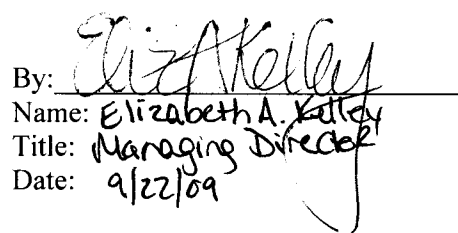 By: Eliz A Kelley
Name: Elizabeth A. Kelley
Title: Managing Director
Date: 9/22/09